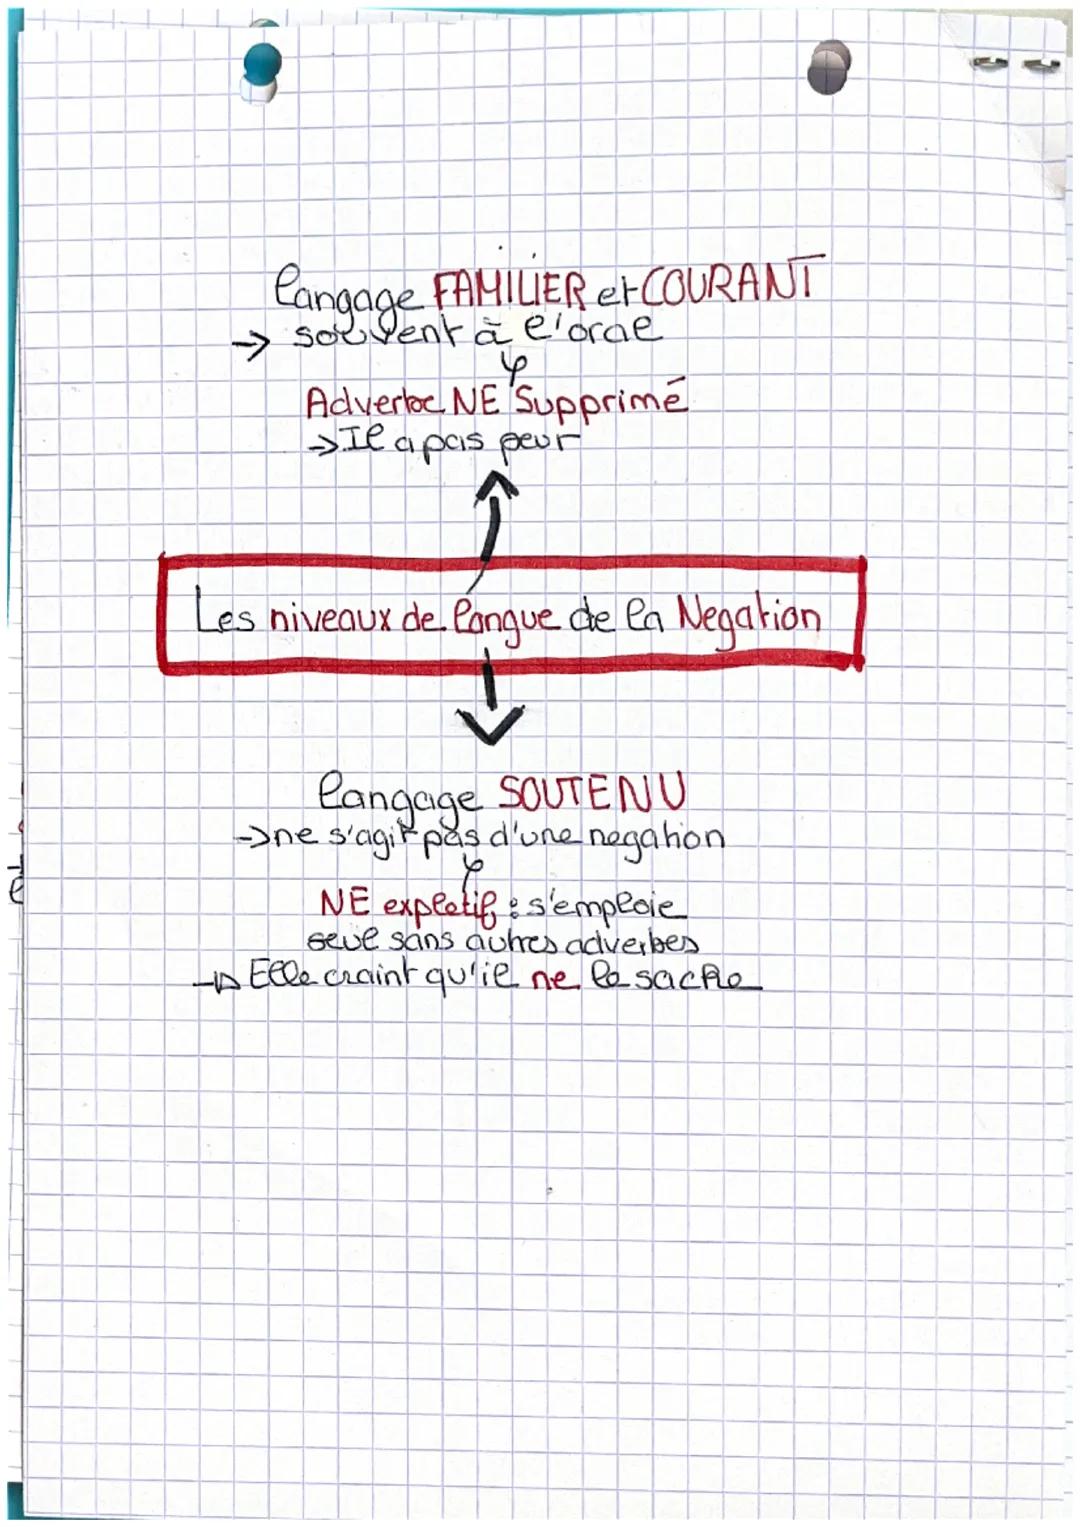 langage FAMILIER et COURANT
→ souvent à l'oral
Adverbe NE Supprimé
→ Il a pas peur
Les niveaux de langue de la Negation
langage SOUTENU
→ ne s'agit pas d'une negation
NE expletif : s'emploie
seul sans autres adverbes
→ Elle craint qu'il ne le sache